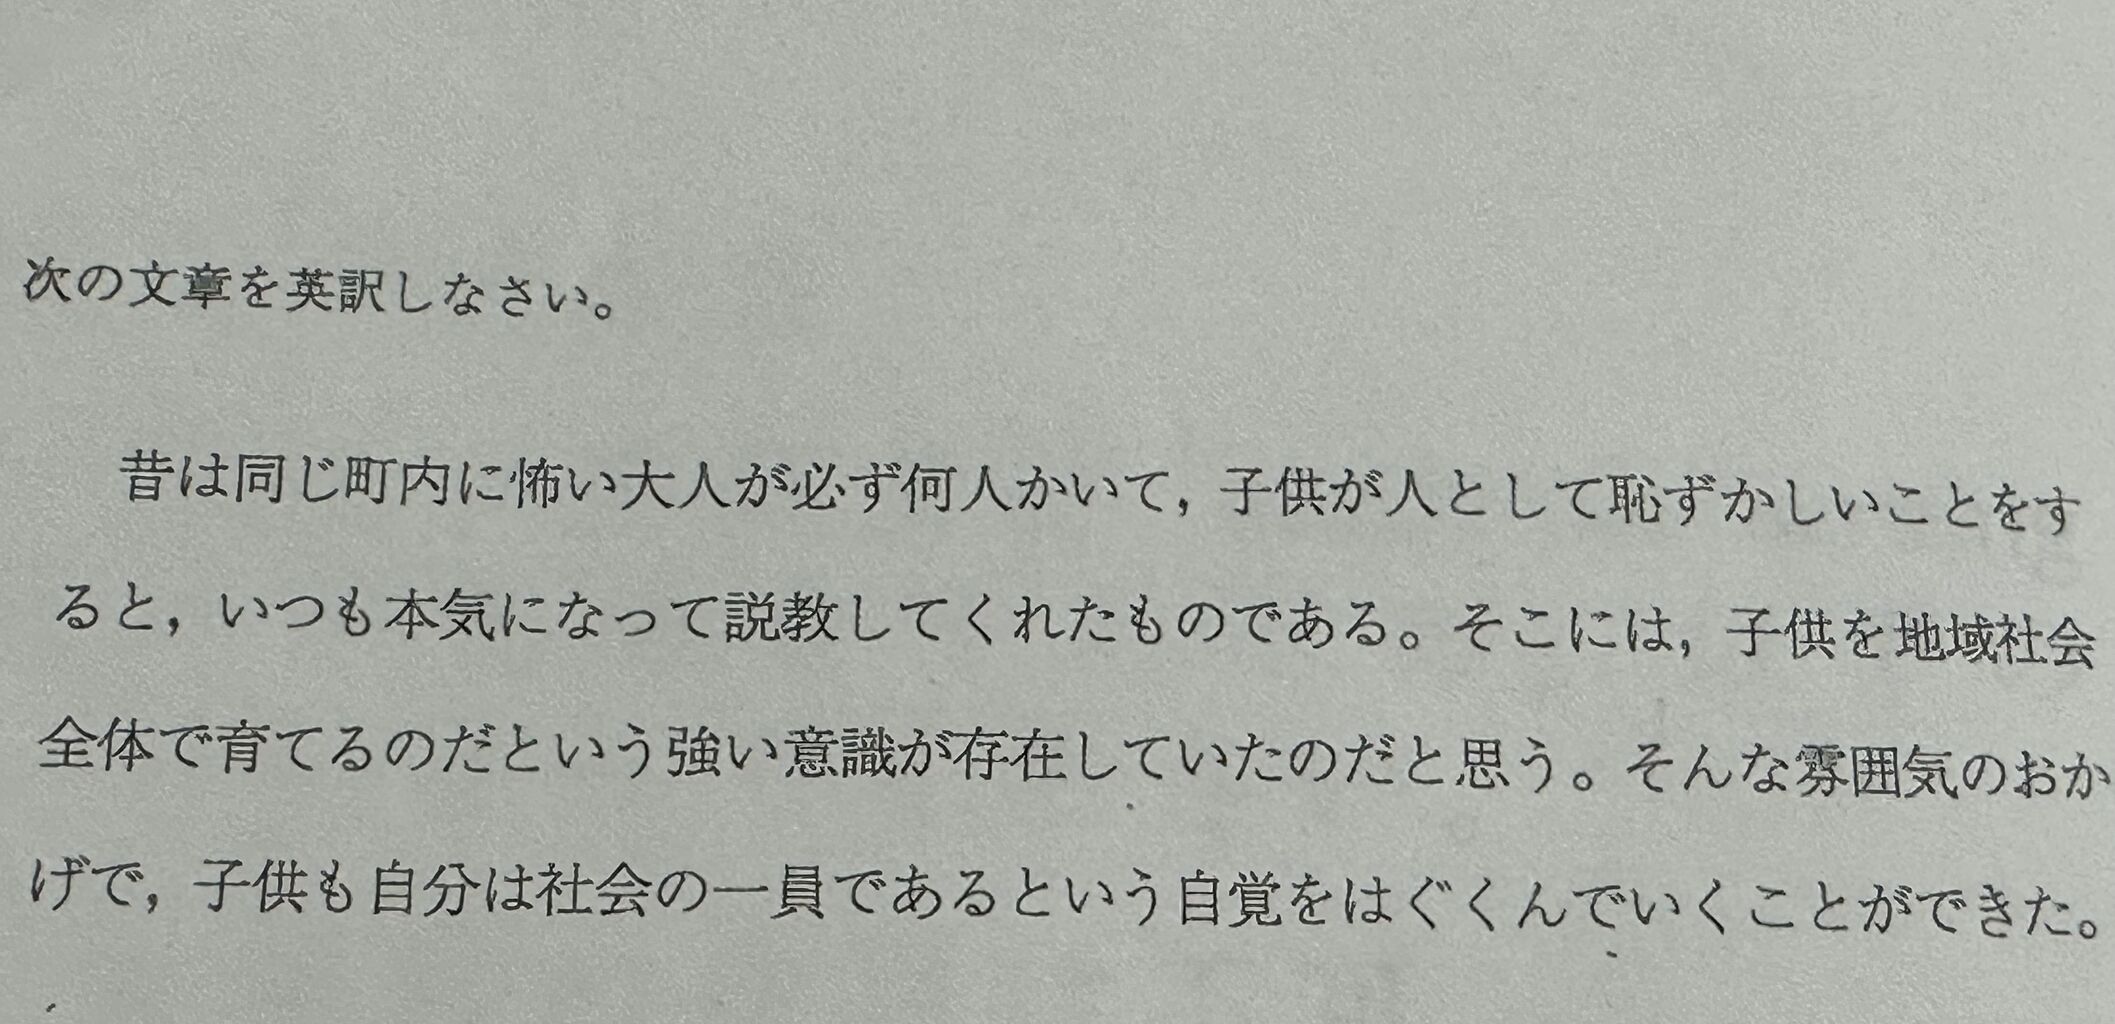 次の文章を英訳しなさい。
昔は同じ町内に怖い大人が必ず何人かいて，子供が人として恥ずかしいことをす
ると，いつも本気になって説教してくれたものである。そこには，子供を地域社会
全体で育てるのだという強い意識が存在していたのだと思う。そんな雰囲気のおか
げで，子供も自分は社会の一員であるという自覚をはぐくんでいくことができた。